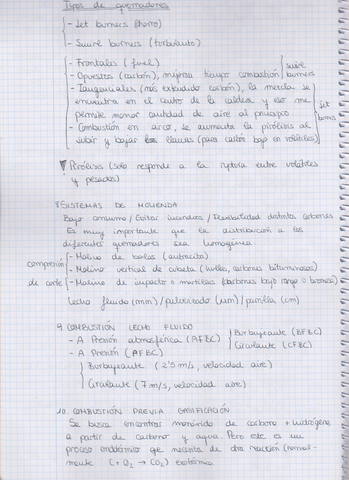 Tipos de quemadores
- Jet burners (chorro)
- Swirl burners (turbulento)
- Frontales (fuel)
- Opuestos (carbón), mejora tiempo combustión
swirl burners
- Tangenciales (más extendido carbón), la mezcla se
encuentra en el centro de la caldera y eso me
permite menor cantidad de aire al principio
- Combustión en arco, se aumenta la pirólisis al
subir y bajar las llamas (para carbón bajo en volátiles)
jet burners
Pirólisis (solo responde a la ruptura entre volátiles
y pesados)
SISTEMAS DE MOLIENDA
Bajo consumo / Evitar incendios / Flexibilidad distintos carbones
Es muy importante que la distribución a los
diferentes quemadores sea homogénea
compresión
- Molino de bolas (antracita)
- Molino vertical de cubeta (hullas, carbones bituminosos)
de corte
- Molino de impacto o martillos (carbones bajo rango o biomasa)
Lecho fluido (mm) / pulverizado (µm) / parrilla (cm)
9. COMBUSTIÓN LECHO FLUIDO
- A Presión atmosférica (AFBC)
Burbujeante (BFBC)
Circulante (CFBC)
- A Presión (AFBC)
Burbujeante (2'5 m/s, velocidad aire)
Circulante (7 m/s, velocidad aire)
10. COMBUSTIÓN PREVIA GASIFICACIÓN
Se busca encontrar monóxido de carbono + hidrógeno
a partir de carbono y agua. Pero este es un
proceso endotérmico que necesita de otra reacción (normal-
mente C + O₂ → CO₂) exotérmica